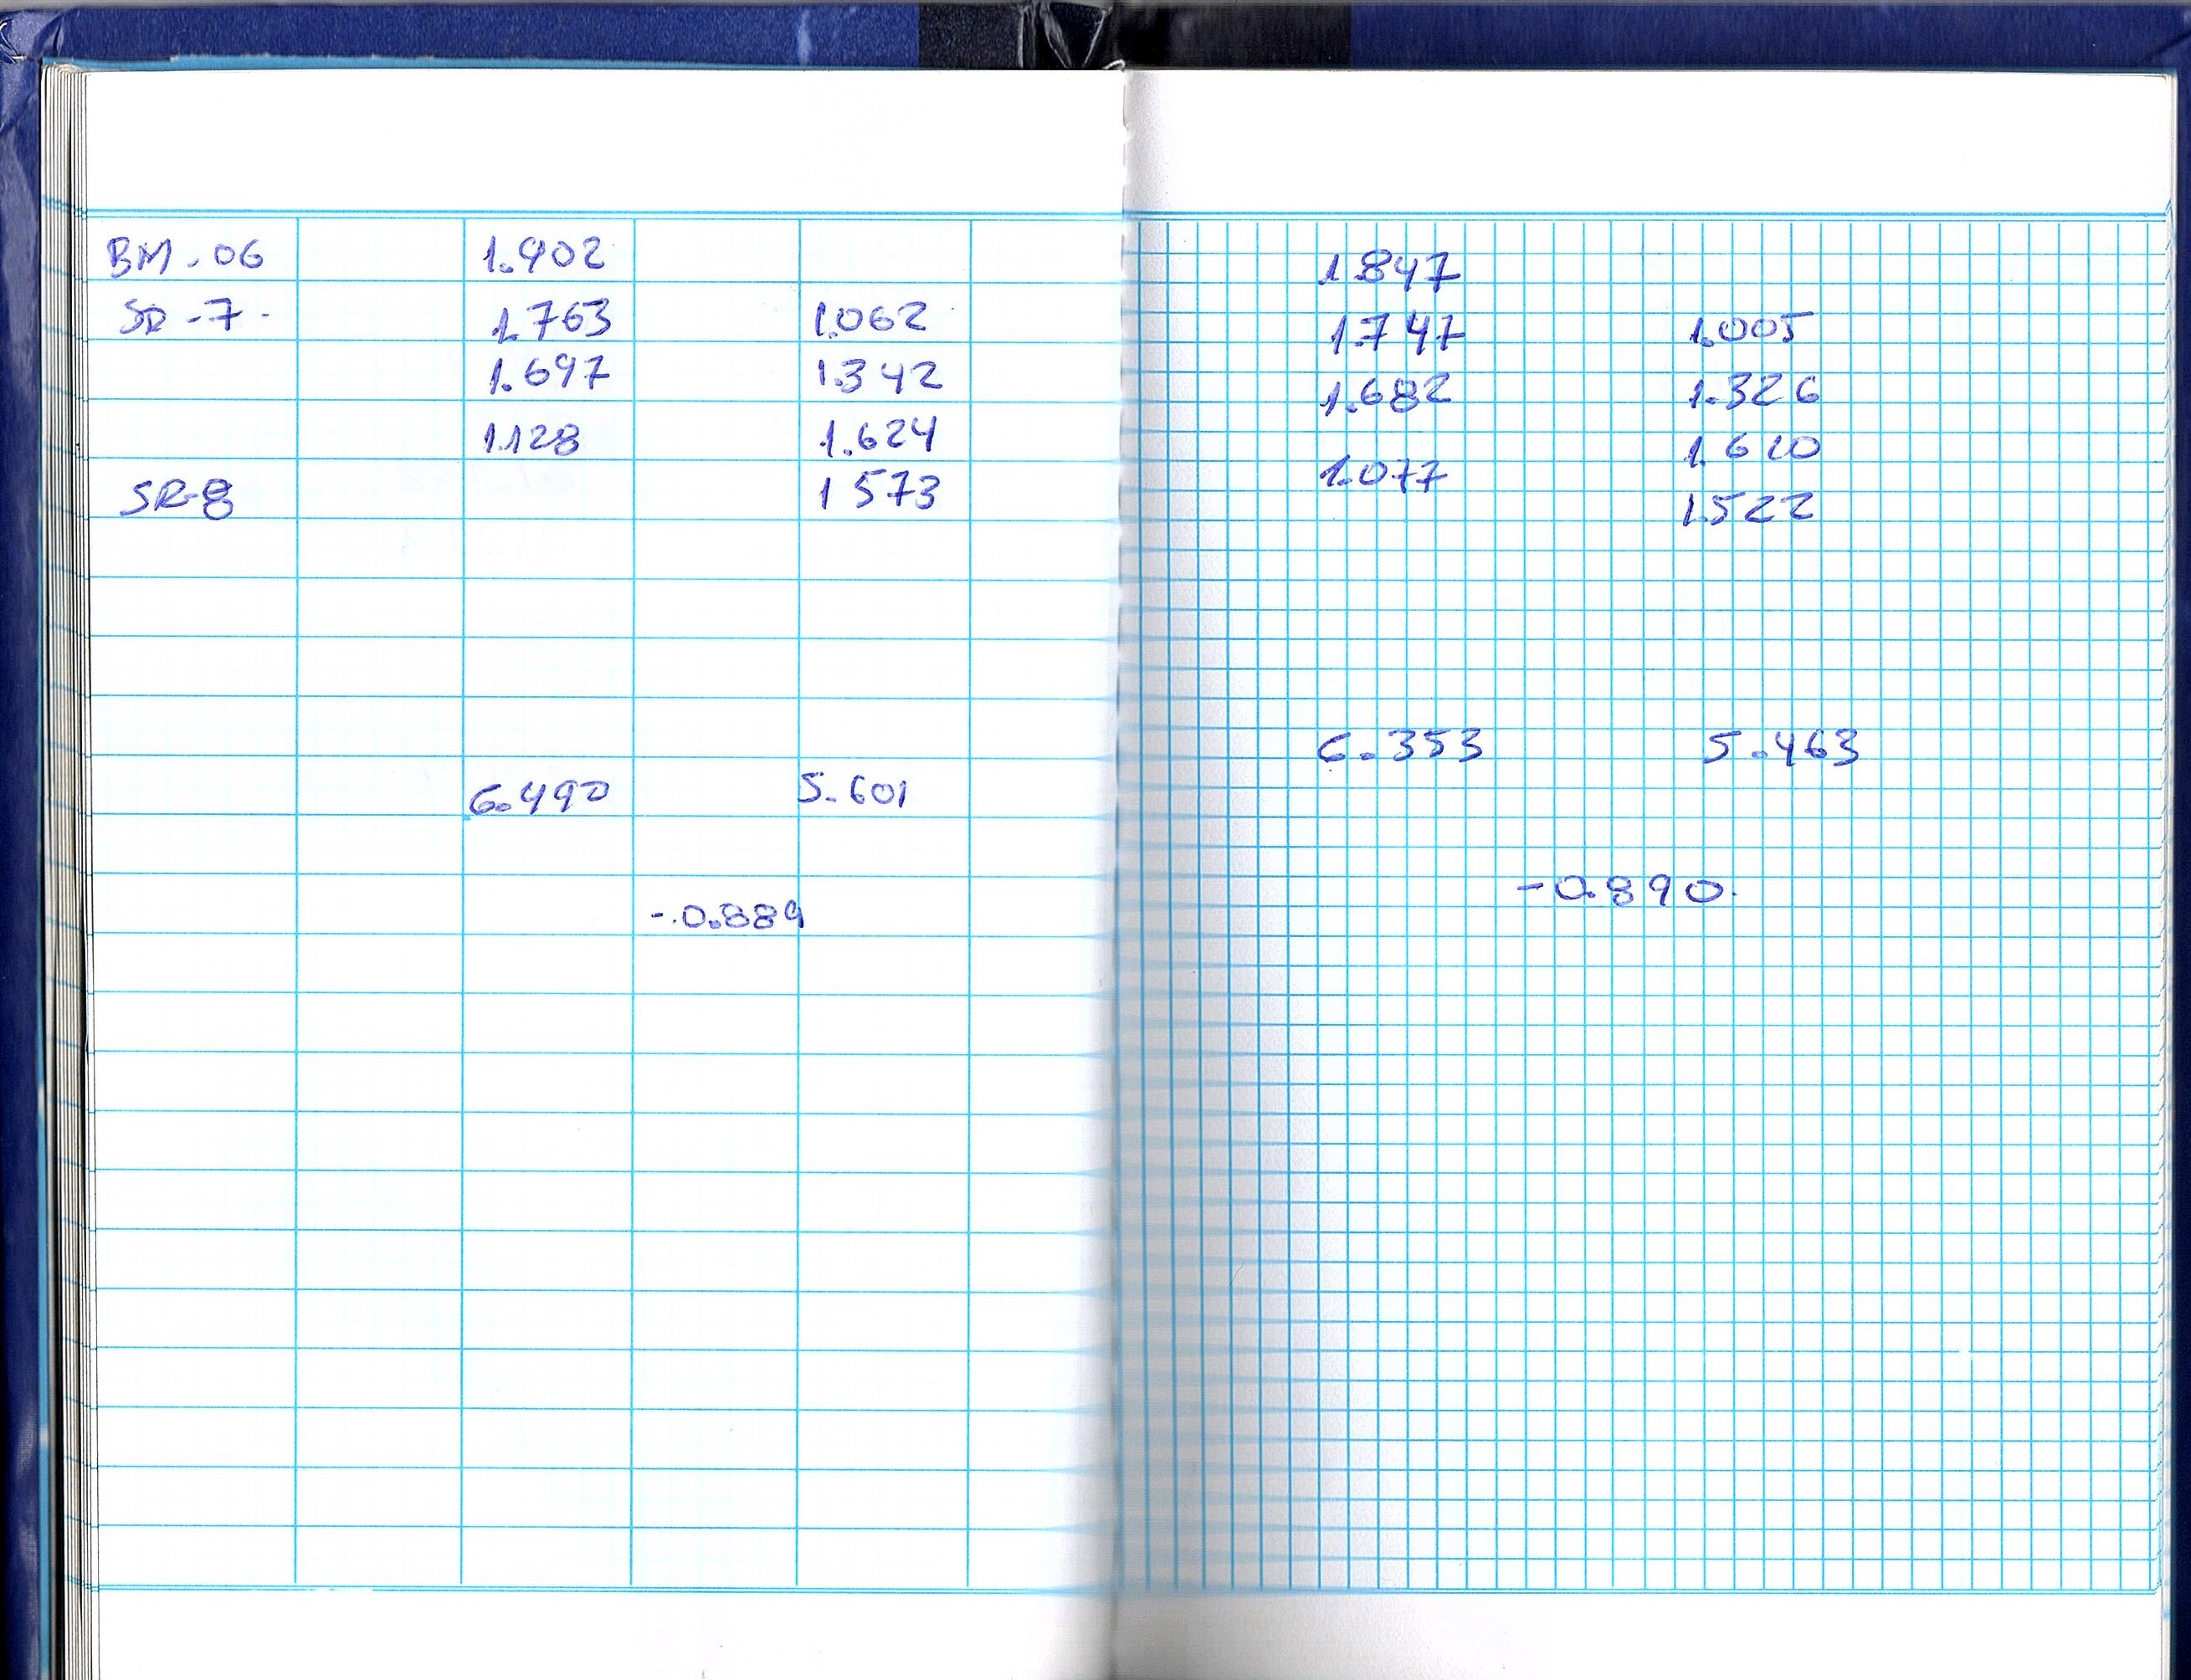 BM-06 1.902
SR-7- 1.763 1.062
1.697 1.342
1.128 1.624
SR-8 1573
6.490 5.601
-.0.889
1.847
1.747 1.005
1.682 1.326
1.077 1.610
1.522
6.353 5.463
-0.890.